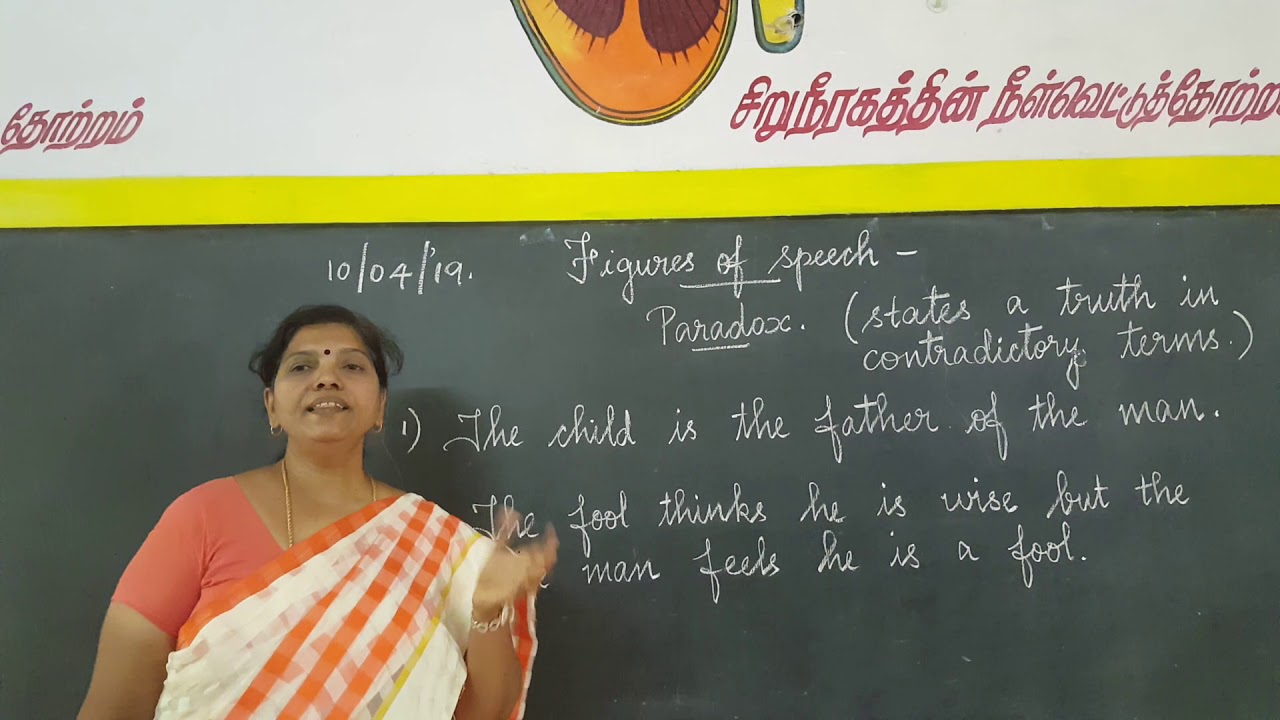 தோற்றம்
சிறுநீரகத்தின் நீள்வெட்டுத்தோற்ற
10/04/'19.
Figures of speech -
Paradox. (states a truth in
contradictory terms.)
1) The child is the father of the man.
The fool thinks he is wise but the
man feels he is a fool.